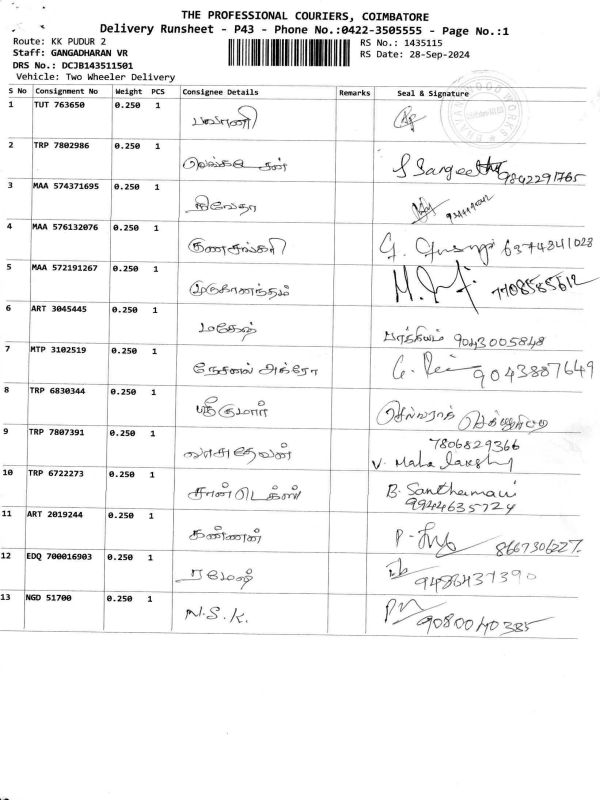 THE PROFESSIONAL COURIERS, COIMBATORE
Delivery Runsheet - P43 - Phone No.:0422-3505555 - Page No.:1
Route: KK PUDUR 2
RS No.: 1435115
Staff: GANGADHARAN VR
RS Date: 28-Sep-2024
DRS No.: DCJB143511501
Vehicle: Two Wheeler Delivery
S No Consignment No Weight PCS Consignee Details Remarks Seal & Signature
1 TUT 763650 0.250 1 பவானி
2 TRP 7802986 0.250 1 S Sangeetha 9842291765
3 MAA 574371695 0.250 1 நிவேதா
4 MAA 576132076 0.250 1 குணசங்கரி 6374841028
5 MAA 572191267 0.250 1 முருகானந்தம் 7708585612
6 ART 3045445 0.250 1 மகேஷ் 9043005848
7 MTP 3102519 0.250 1 நேசனல் அக்ரோ 9043887649
8 TRP 6830344 0.250 1 ஸ்ரீகுமார்
9 TRP 7807391 0.250 1 வாசுதேவன் 7806829366
V. Maha lakshmy
10 TRP 6722273 0.250 1 சான்டெக்ஸ் B. Santhamani
9944635724
11 ART 2019244 0.250 1 கண்ணன் 8667306227
12 EDQ 700016903 0.250 1 ரமேஷ் 9486437390
13 NGD 51700 0.250 1 N.S.K. 9080040385